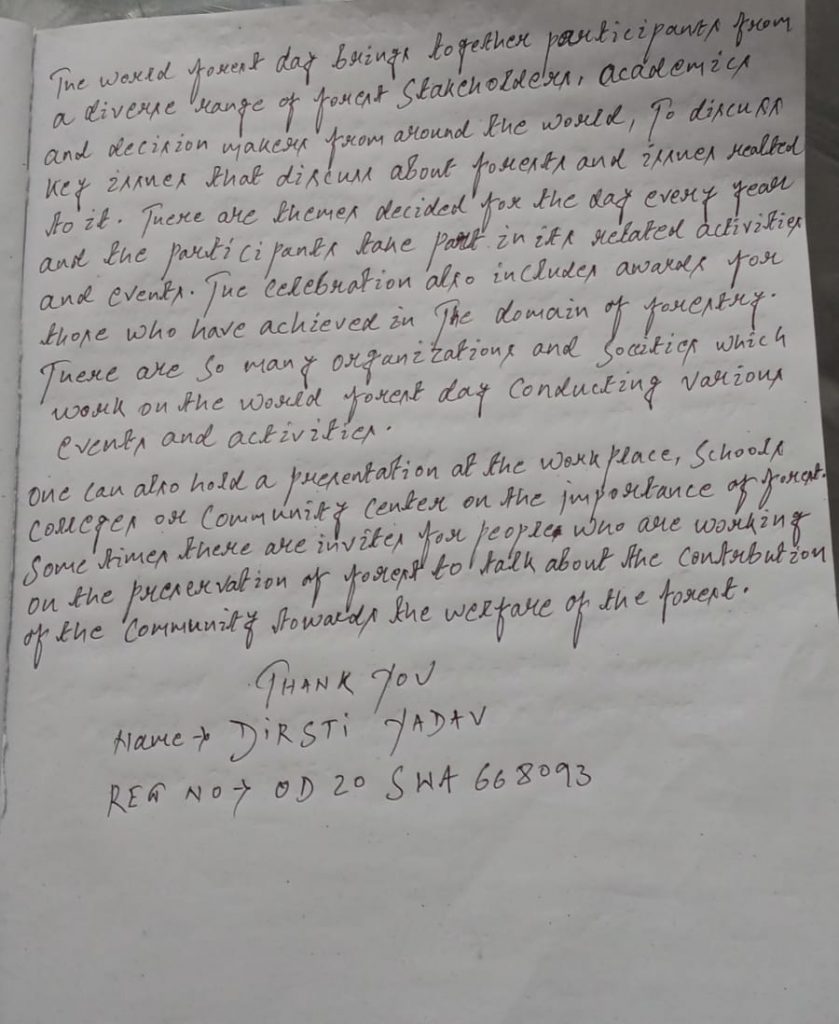 The world forest day brings together participants from
a diverse range of forest stakeholders, academics
and decision makers from around the world, To discuss
key issues that discuss about forests and issues realted
to it. There are themes decided for the day every year
and the participants take part in its related activities
and events. The celebration also includes awards for
those who have achieved in The domain of forestry.
There are so many organizations and socities which
work on the world forest day Conducting various
events and activities.
One can also hold a presentation at the work place, Schools
Colleges or Community Center on the importance of forest.
Some times there are invites for peoples who are working
on the preservation of forest to talk about the Contrbution
of the Community towards the welfare of the forest.
THANK YOU
Name → DiRSTi YADAV
REG NO → OD 20 SWA 668093